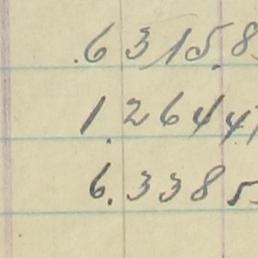 .63158
1.2644
6.3385